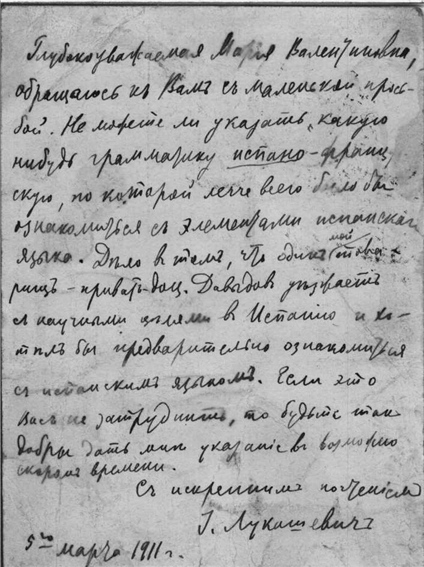 Глубокоуважаемая Марія Валентиновна,
обращаюсь къ Вамъ съ маленькой прось-
бой. Не можете ли указать какую
нибудь грамматику испано-франц.
скую, по которой легче всего было бы
ознакомиться съ элементами испанскаго
языка. Дѣло въ томъ, что одинъ мой това-
рищъ – приватъ-доц. Давыдов уѣзжаетъ
съ научными цѣлями в Испанію и хо-
тѣлъ бы предварительно ознакомиться
съ испанскимъ языкомъ. Если это
Васъ не затруднитъ, то будьте так
добры дать мнѣ указаніе в возможно
скоромъ времени.
Съ искреннимъ почтеніемъ
І. Лукашевичъ
5го марта 1911 г.